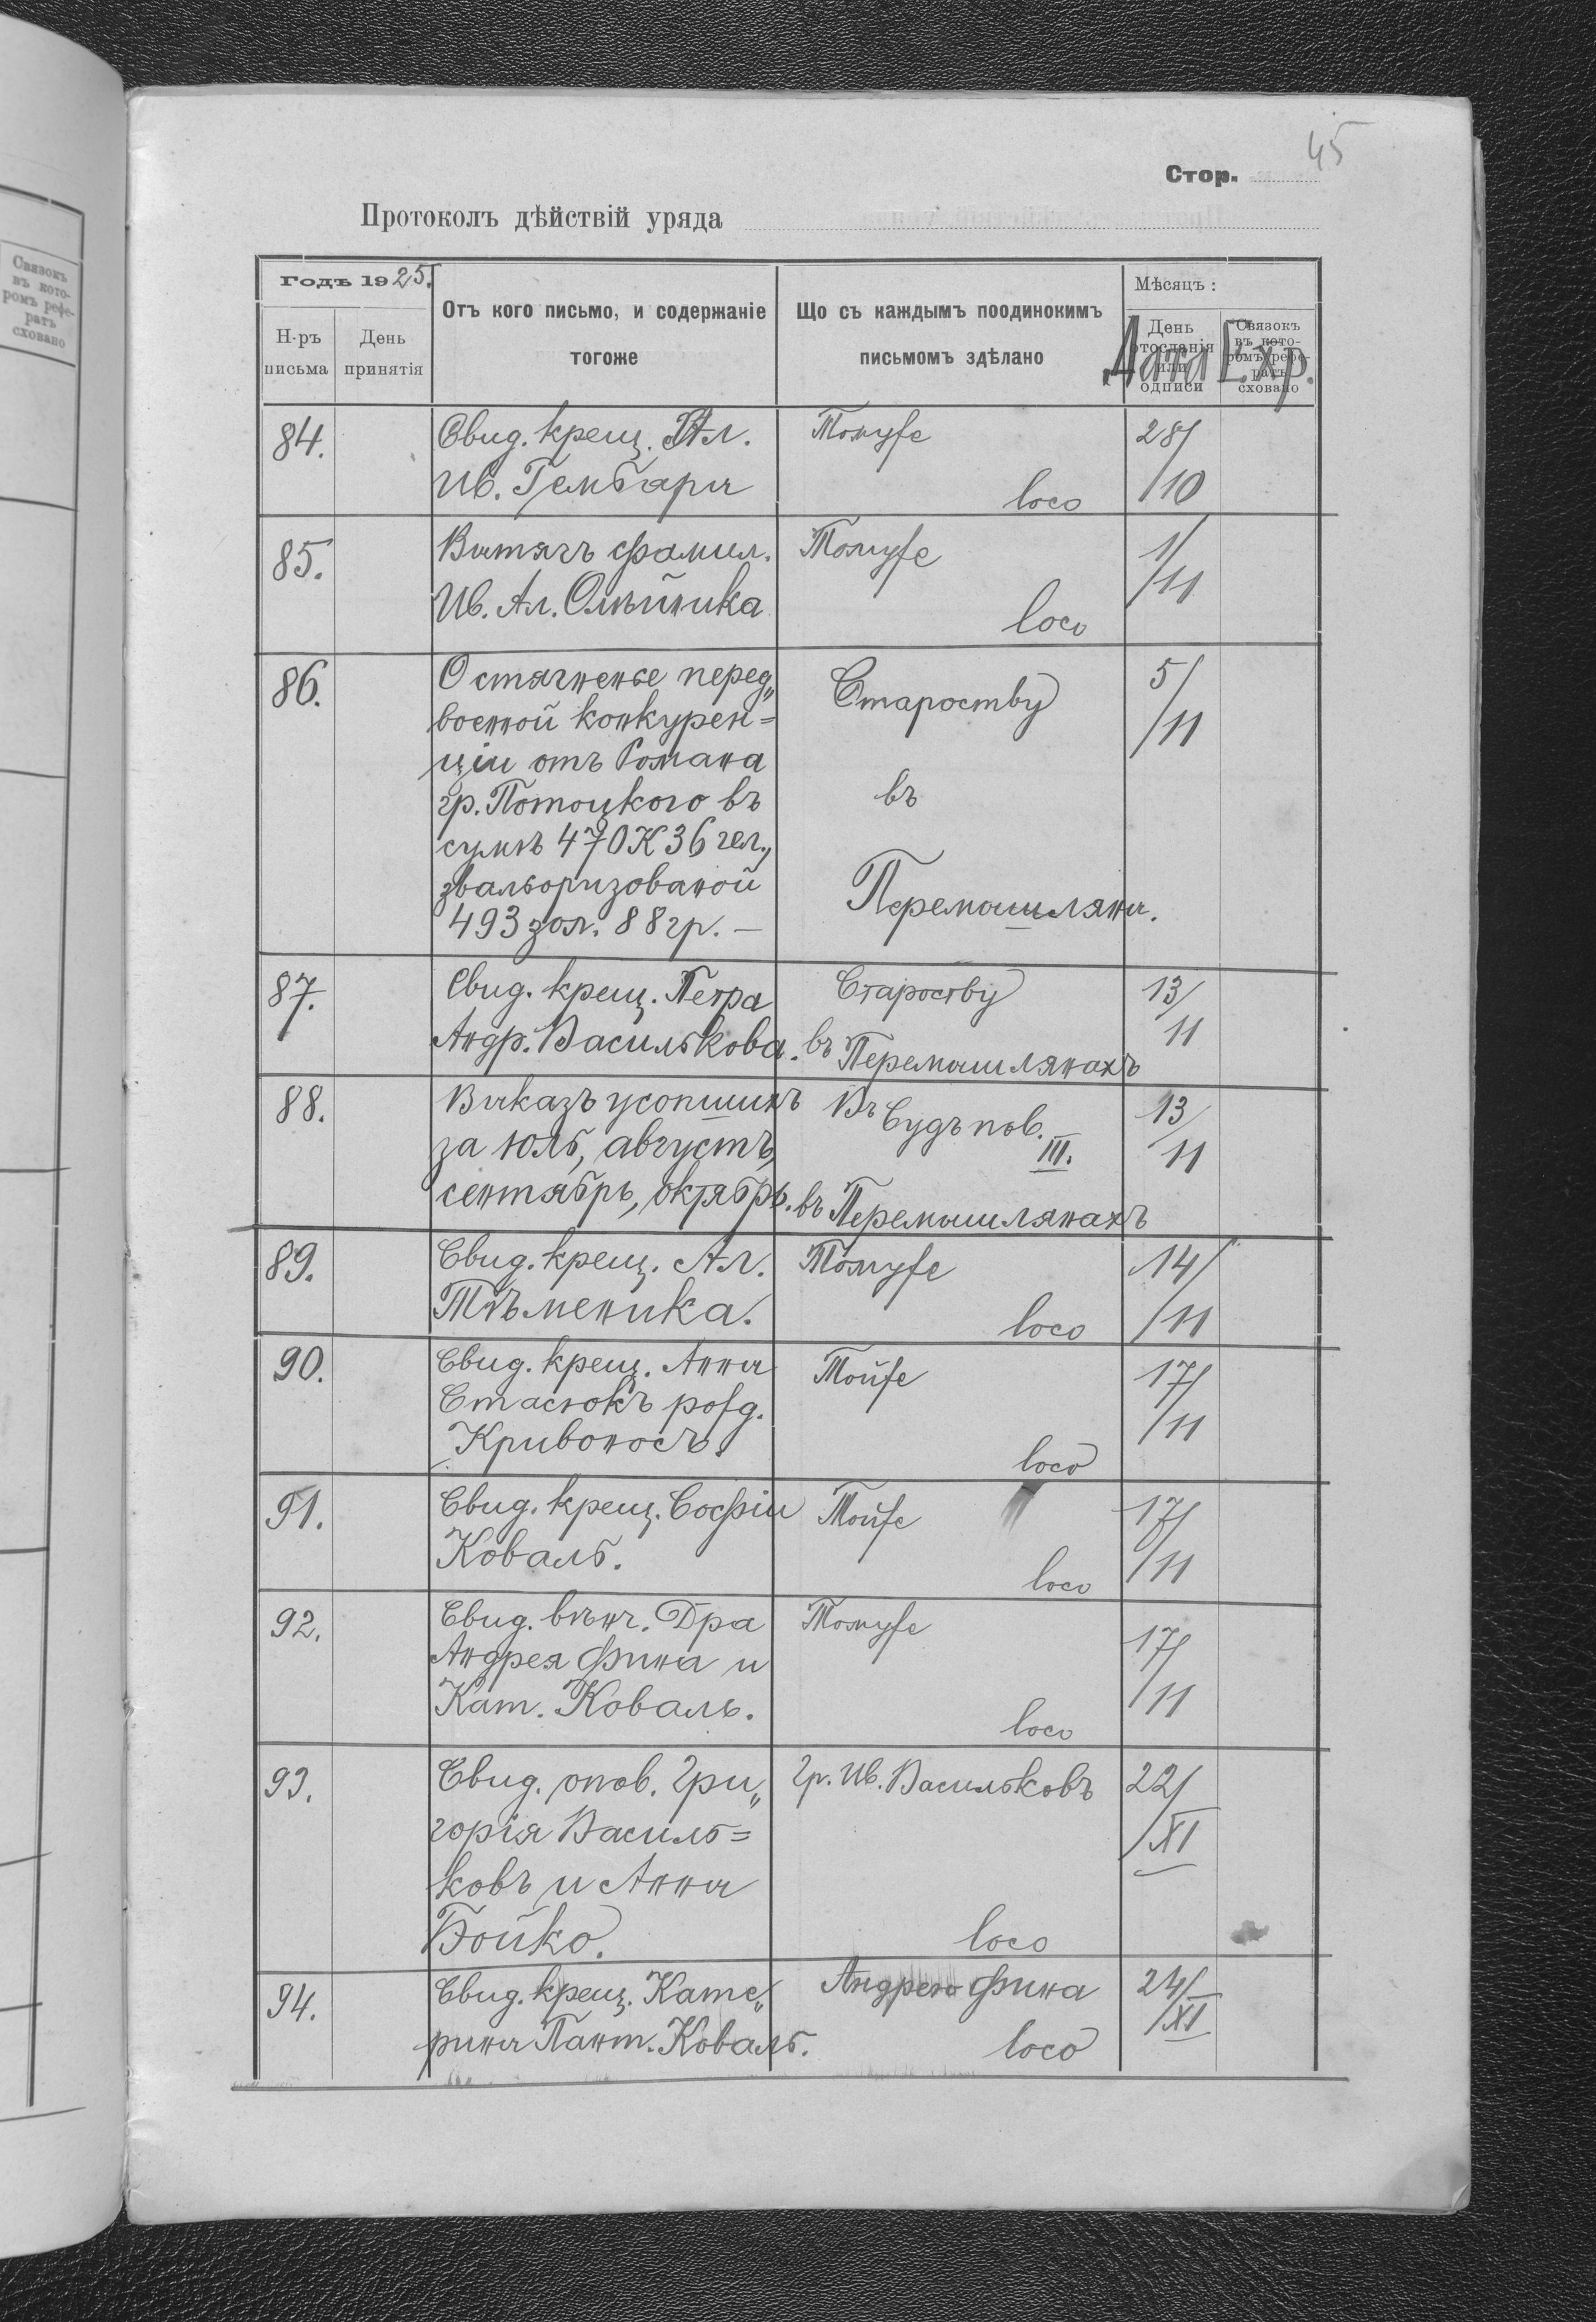 45
Стор.
Протоколъ дѣйствій уряда
Годъ 1925.
Н-ръ письма
День принятія
Отъ кого письмо, и содержаніе тогоже
Що съ каждымъ поодинокимъ письмомъ здѣлано
Мѣсяцъ :
День отосланія или одписи
Связокъ въ кото-ромъ рефе-ратъ сховано
Дата Exp.
84.
Свид. крещ. Ал.
Ив. Гембары
Томуже
loco
28/10
85.
Вытягъ фамил.
Ив. Ал. Олѣйника
Томуже
loco
1/11
86.
О стягненье перед„
военной конкурен=
ціи отъ Романа
гр. Потоцкого въ
сумѣ 470 К 36 гел.,
звальоризованой
493 зол. 88 гр. —
Староству
въ
Перемышляны.
5/11
87.
Свид. крещ. Петра
Андр. Василькова.
Староству
въ Перемышлянахъ
13/11
88.
Выказъ усопшихъ
за юль, августъ,
сентябрь, октябрь.
Въ Судъ пов.
III.
въ Перемышлянахъ
13/11
89.
Свид. крещ. Ал.
Тѣменика.
Томуже
loco
14/11
90.
Свид. крещ. Анны
Стасюкъ рожд.
Кривоносъ.
Тойже
loco
17/11
91.
Свид. крещ. Софіи
Коваль.
Тойже
loco
17/11
92.
Свид. вѣнч. Дра
Андрея Фина и
Кат. Коваль.
Томуже
loco
17/11
93.
Свид. опов. Гри„
горія Василь=
ковъ и Анны
Бойко.
Гр. Ив. Васильковъ
loco
22/XI
94.
Свид. крещ. Кате„
рины Пант. Коваль.
Андрею Фина
loco
24/XI
Связокъ
въ кото-
ромъ рефе-
ратъ
сховано